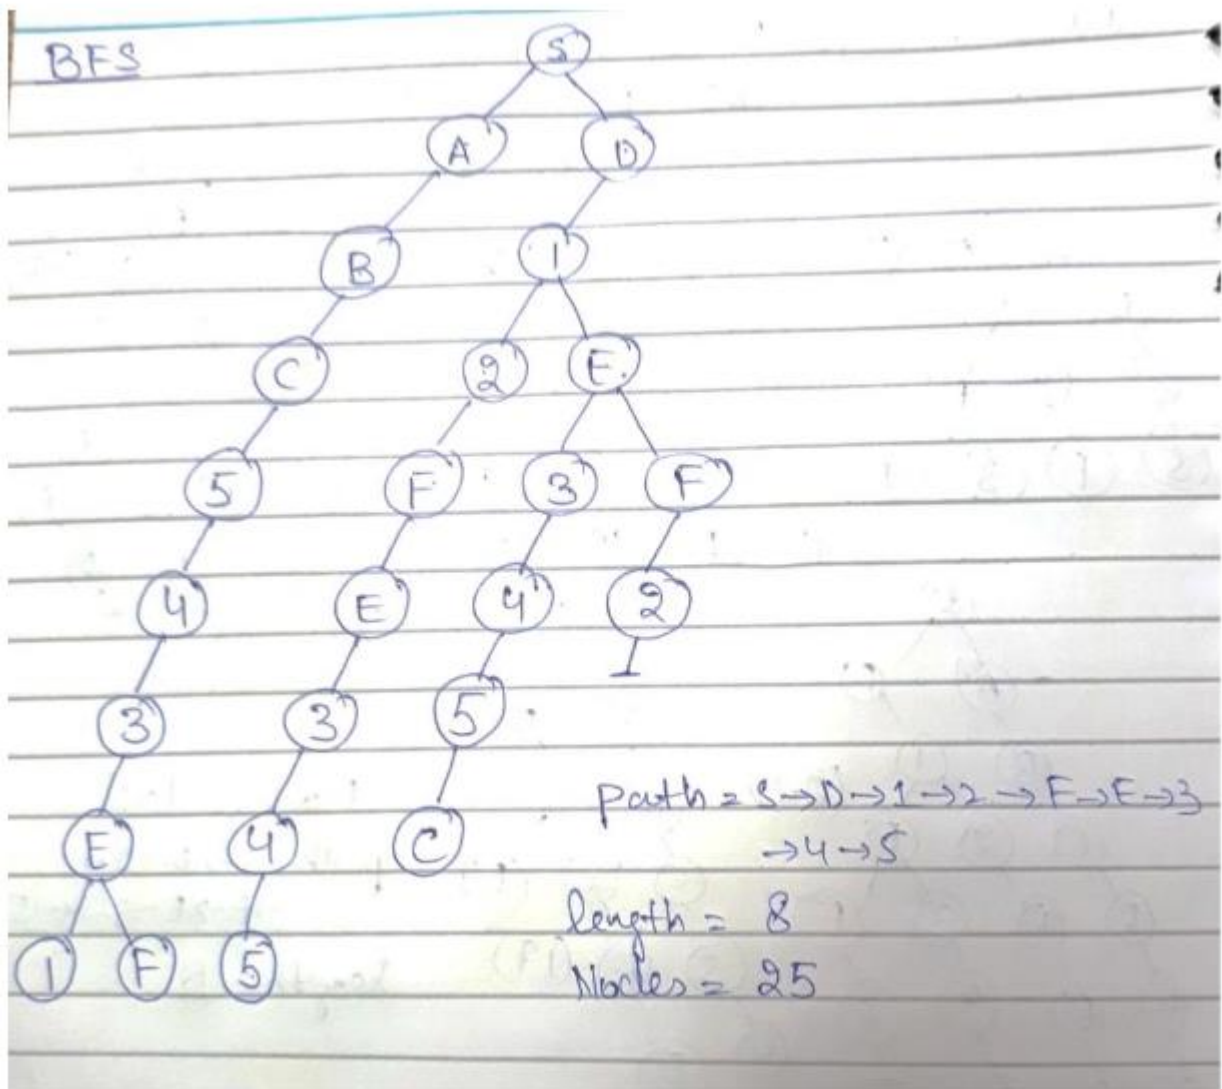 BFS
S
A D
B 1
C 2 E
5 F 3 F
4 E 4 2
3 3 5
E 4 C
1 F 5
path = S→D→1→2→F→E→3
→4→5
length = 8
Nodes = 25